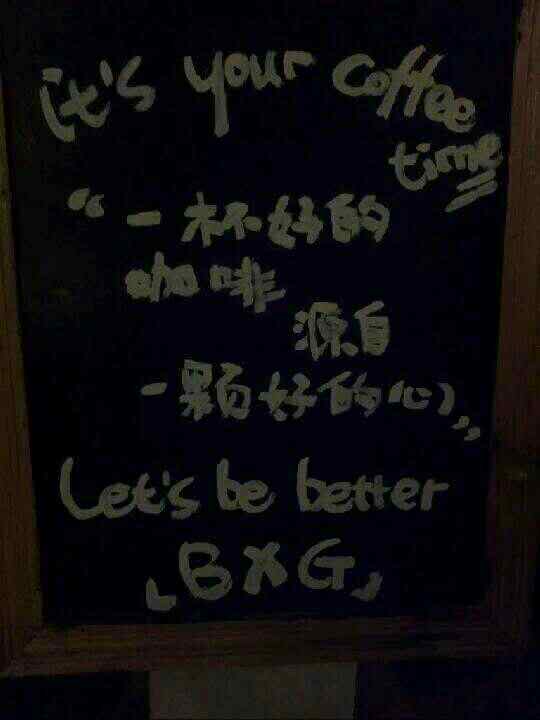 it's your coffee
time
“一杯好的
咖啡
源自
一颗好的心”
Let's be better
「BXG」